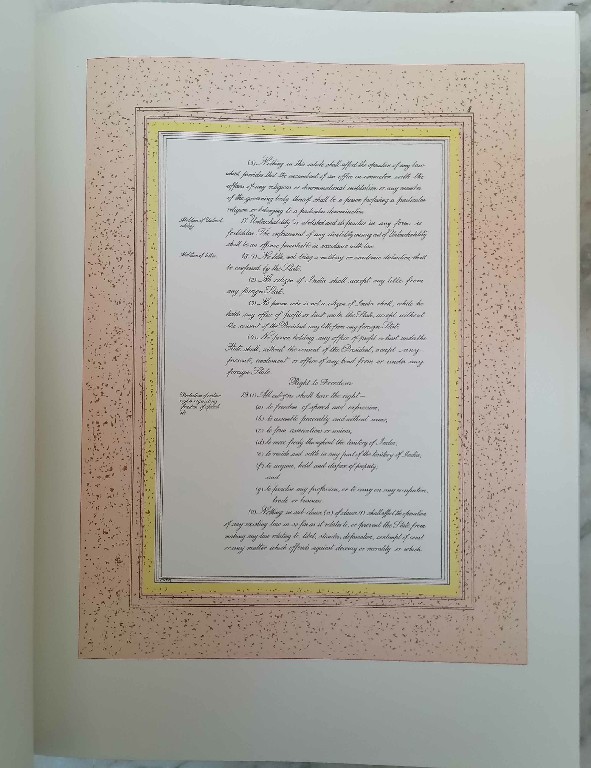 (5) Nothing in this article shall affect the operation of any law
which provides that the incumbent of an office in connection with the
affairs of any religious or denominational institution or any member
of the governing body thereof shall be a person professing a particular
religion or belonging to a particular denomination.
Abolition of Untouch-
ability.
17. Untouchability is abolished and its practice in any form is
forbidden. The enforcement of any disability arising out of Untouchability
shall be an offence punishable in accordance with law.
Abolition of titles.
18. (1) No title, not being a military or academic distinction, shall
be conferred by the State.
(2) No citizen of India shall accept any title from
any foreign State.
(3) No person who is not a citizen of India shall, while he
holds any office of profit or trust under the State, accept without
the consent of the President any title from any foreign State.
(4) No person holding any office of profit or trust under the
State shall, without the consent of the President, accept any
present, emolument or office of any kind from or under any
foreign State.
Right to Freedom
Protection of certain
rights regarding
freedom of speech
etc.
19. (1) All citizens shall have the right —
(a) to freedom of speech and expression;
(b) to assemble peaceably and without arms;
(c) to form associations or unions;
(d) to move freely throughout the territory of India;
(e) to reside and settle in any part of the territory of India;
(f) to acquire, hold and dispose of property;
and
(g) to practise any profession, or to carry on any occupation,
trade or business.
(2) Nothing in sub-clause (a) of clause (1) shall affect the operation
of any existing law in so far as it relates to, or prevent the State from
making any law relating to, libel, slander, defamation, contempt of court
or any matter which offends against decency or morality or which